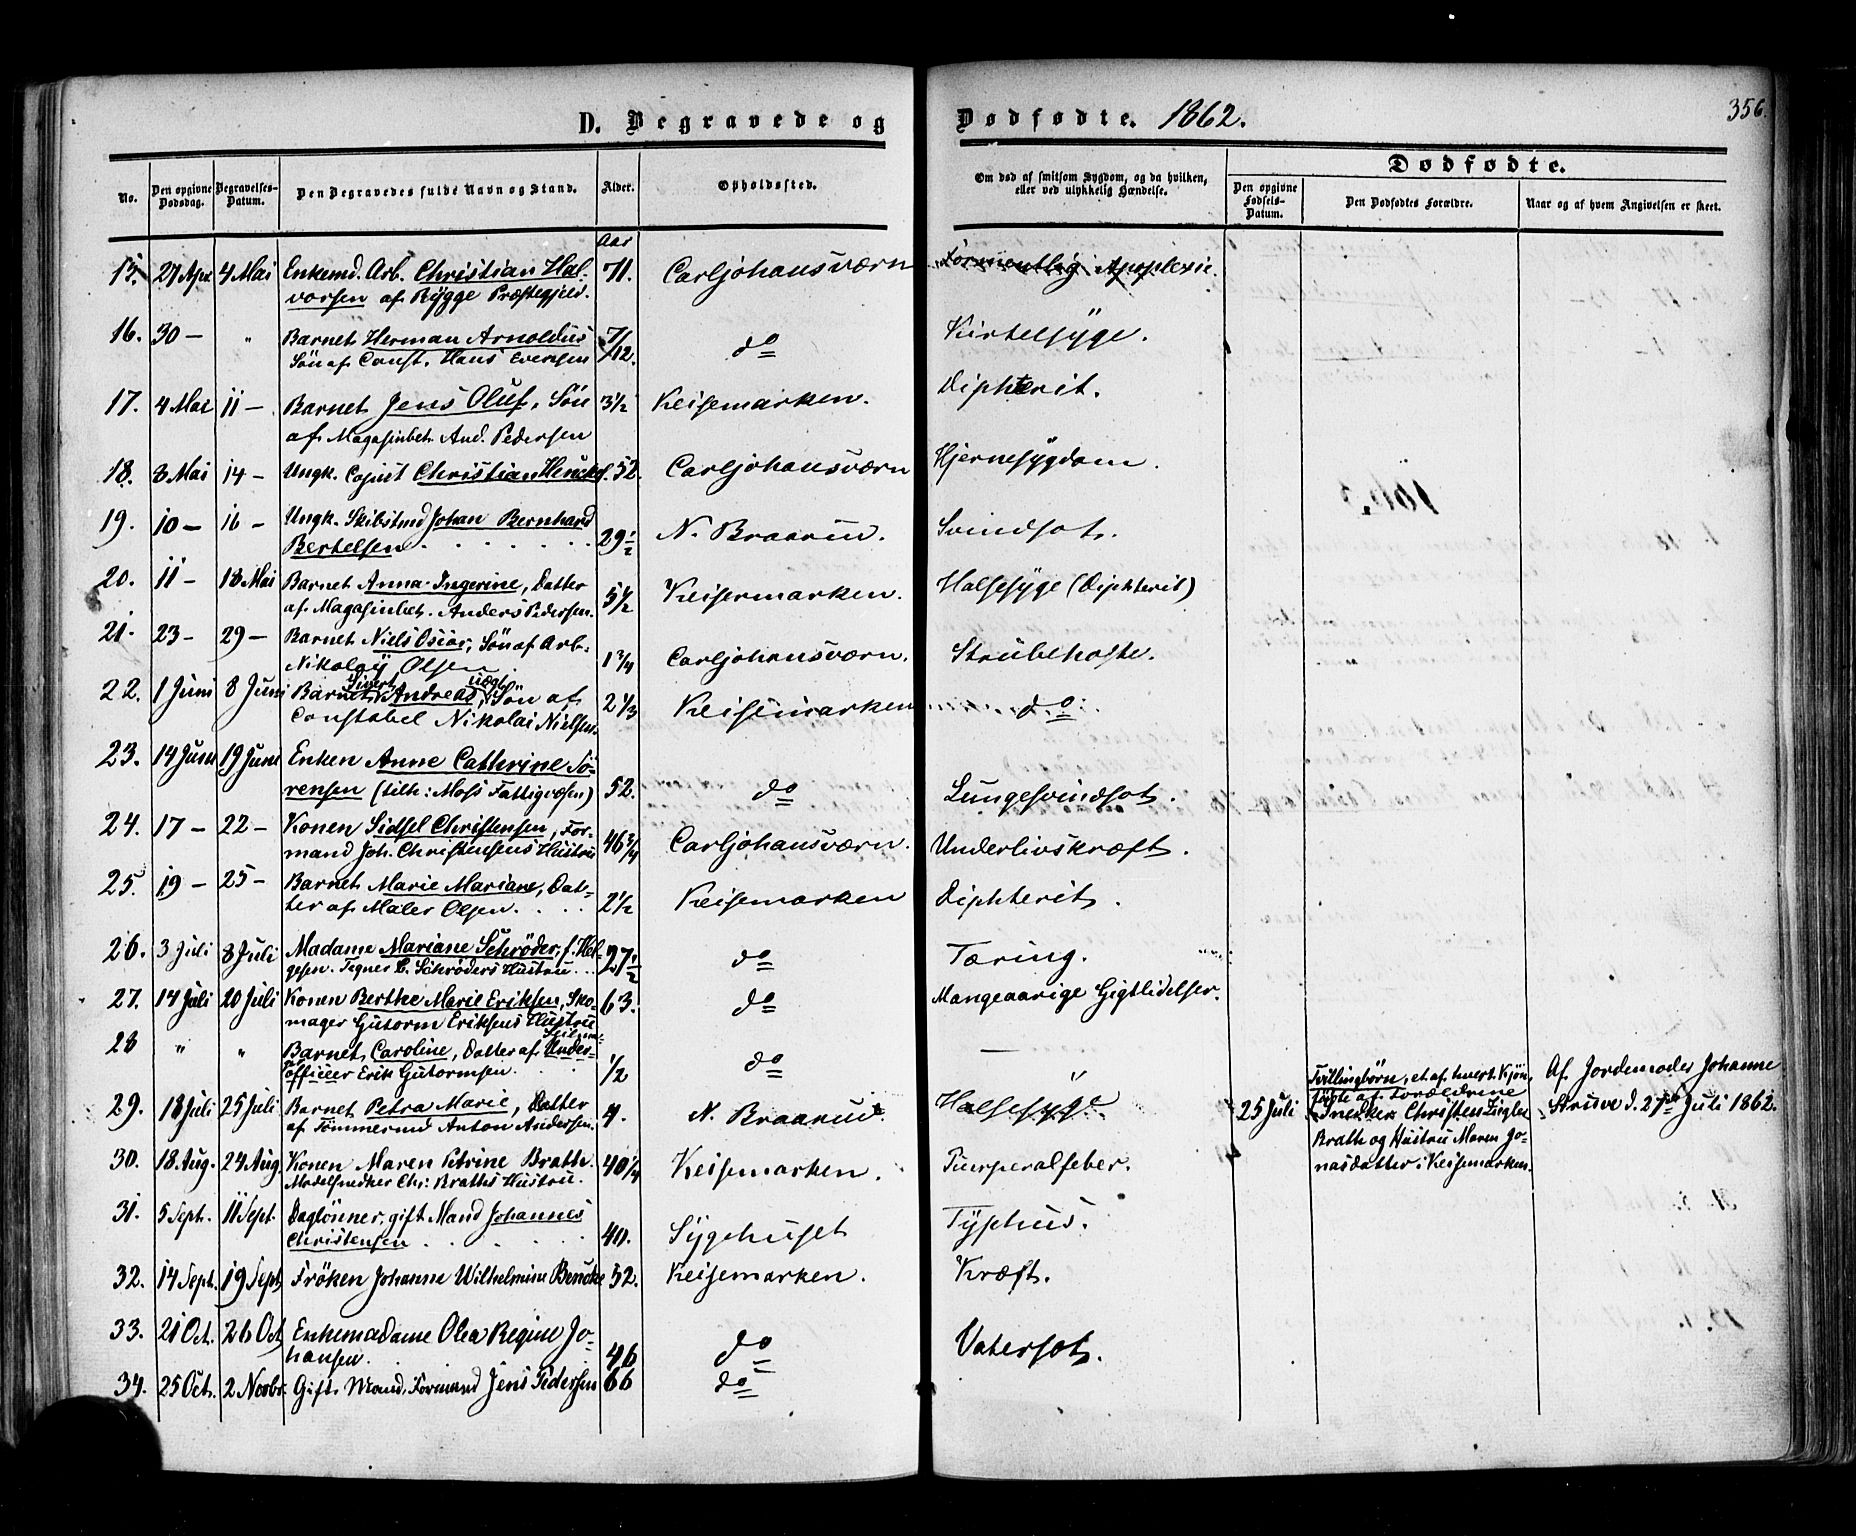 D. Begravede og
Dødfødte. 1862.
356.
No.
Den opgivne Dødsdag.
Begravelses-Datum.
Den Begravedes fulde Navn og Stand.
Alder.
Opholdssted.
Om død af smitsom Sygdom, og da hvilken,
eller ved ulykkelig Hændelse.
Dødfødte.
Den opgivne Fødsels-Datum.
Den Dødfødtes Forældre.
Naar og af hvem Angivelsen er skeet.
Aar
15. 27 Apr 4 Mai Enkemd. Arb. Christian Hal- 71. Carljohansværn Formentlig Apoplexie.
vorsen af Rygge Præstegjeld.
16. 30 — " Barnet Herman Arnoldus 7/12. do Kirtelsyge.
Søn af Const. Hans Evensen
17. 4 Mai 11 — Barnet Jens Oluf, Søn 3½ Keisemarken. Diphterit.
af Magasinbet. And. Pedersen
18. 8 Mai 14 — Ungk. Copiist Christian Henckel. 52. Carljohansværn Hjernesygdom.
19. 10 — 16 — Ungk. Skibstmd Johan Bernhard
Bertelsen . . . . . 29½ N. Braarud. Svindsot.
20. 11 — 18 Mai Barnet Anna Ingerine, Datter
af Magasinbet. Anders Pedersen. 5½ Keisermarken. Halsesyge (Diphterit)
21. 23 — 29 — Barnet Niels Oscar, Søn af Arb.
Nikolay Olsen 1¾ Carljohansværn. Strubehoste.
22. 1 Juni 8 Juni Barnet Sivert Andreas, uægt Søn af 2⅓ Keisemarken do
Constabel Nikolai Nielsen.
23. 14 Juni 19 Juni Enken Anne Cathrine Sö-
rensen (tilh: Moss Fattigvæsen) 52. do Lungesvindsot.
24. 17 — 22 — Konen Sidsel Christensen, For- 46¾ Carljohansværn. Underlivskræft.
mand Joh. Christensens Hustru
25. 19 — 25 — Barnet Marie Mariane, Dat-
ter af Maler Olsen. . . . 2½ Keisemarken Diphterit.
26. 3 Juli 8 Juli Madame Mariane Schrøder, f. Hel- 27½ do Tæring.
gesen. Tegner C. Schrøders Hustru . . .
27. 14 Juli 20 Juli Konen Berthe Marie Eriksen, Sko- 63. do Mangeaarige Gigtlidelser.
mager Gutorm Eriksens Hustru
28 " " Barnet Caroline, Datter af Under- ½ do —
officeer Erik Gutormsen.
29. 18 Juli 25 Juli Barnet Petra Marie, Datter 4. N. Braarud Halsesyge
af Tömmermd Anton Andersen.
25 Juli
Tvillingbörn, et af hvert Kjön,
födte af Forældrene
Snedker Christen Zigler
Brath og Hustru Maren Jo-
nasdatter i Keisemarken.
Af Jordemoder Johanne
Struve d. 27de Juli 1862.
30. 18 Aug. 24 Aug Konen Maren Petrine Brath. 40¼ Keisemarken. Puerperalfeber.
Modelsnedker Chr: Braths Hustru.
31. 5 Sept. 11 Sept. Daglönner, gift Mand Johannes
Christensen . . . . . 40. Sygehuset Typhus.
32. 14 Sept. 19 Sept Fröken Johanne Wilhelmine Bencke 32. Keisemarken. Kræft.
33. 21 Oct. 26 Oct Enkemadame Olea Regine Jo-
hansen. 46 do Vatersot.
34. 25 Oct. 2 Novbr. Gift Mand, Formand Jens Pedersen 66 do